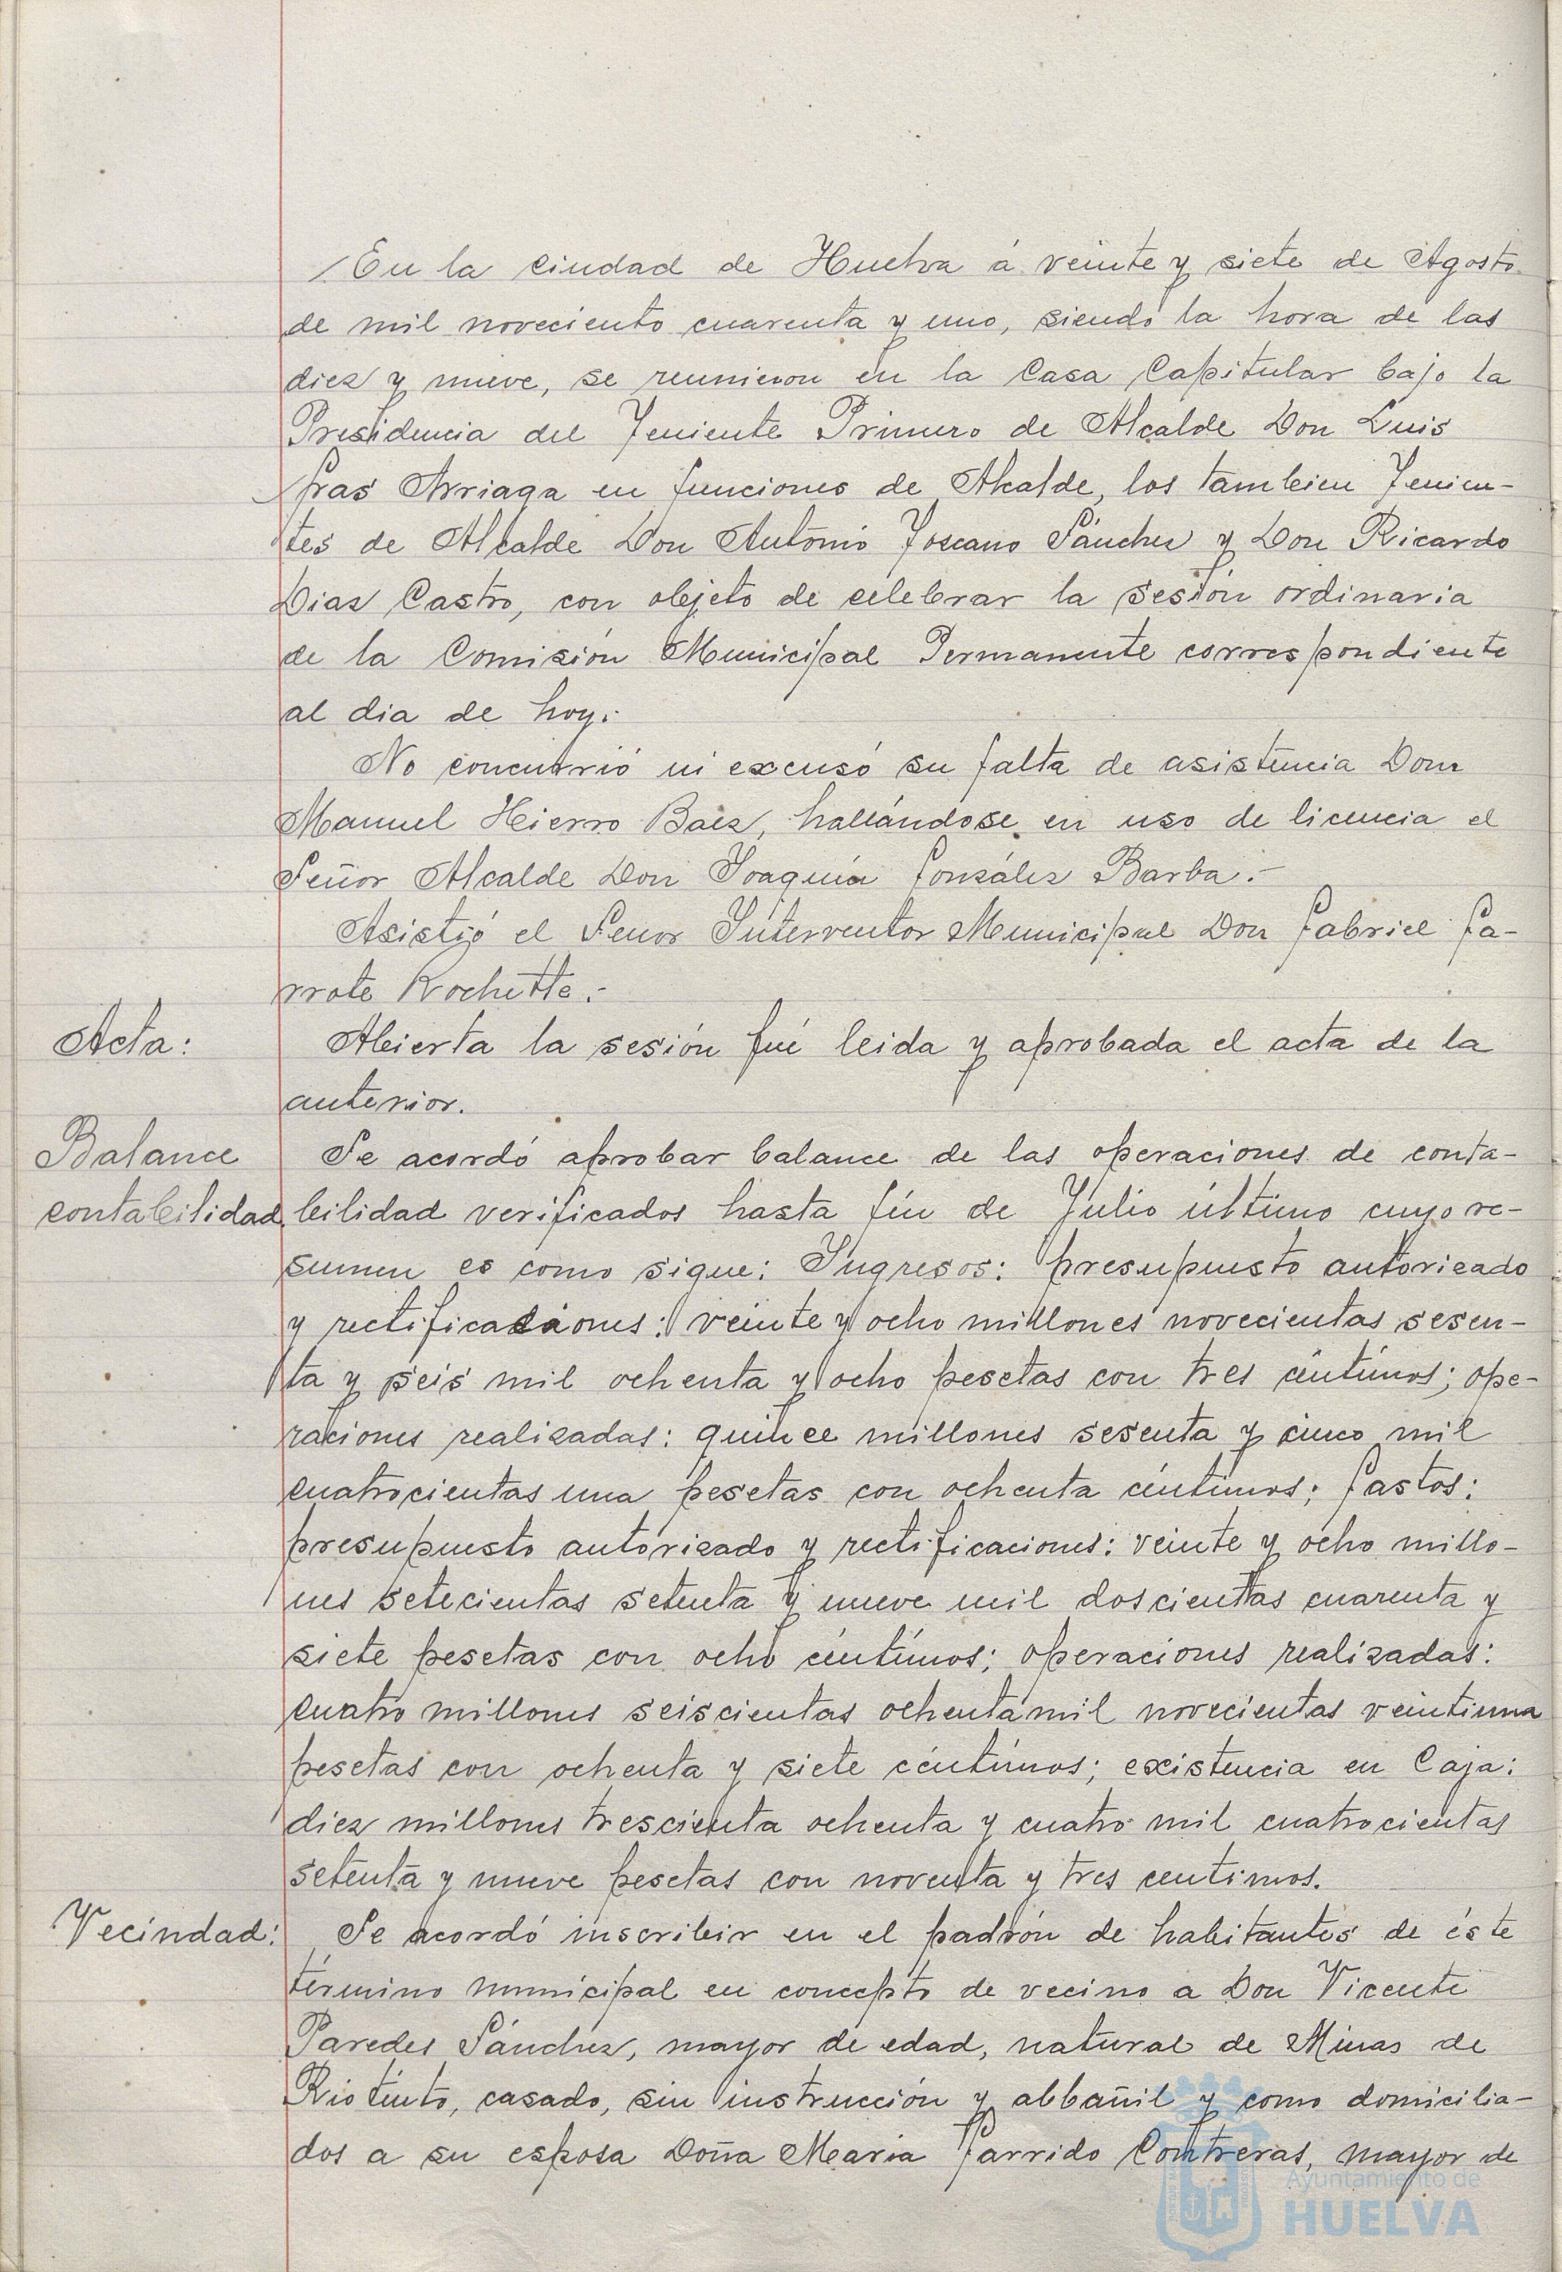 En la Ciudad de Huelva á veinte y siete de Agosto
de mil noveciento cuarenta y uno, siendo la hora de las
diez y nueve, se reunieron en la Casa Capitular bajo la
Presidencia del Teniente Primero de Alcalde Don Luis
Gras Arriaga en funciones de Alcalde, los tambien Tenien-
tes de Alcalde Don Antonio Toscano Sánchez y Don Ricardo
Diaz Castro, con objeto de celebrar la sesión ordinaria
de la Comisión Municipal Permanente correspondiente
al dia de hoy.
No concurrió ni excusó su falta de asistencia Don
Manuel Hierro Baez, hallándose en uso de licencia el
Señor Alcalde Don Joaquín González Barba.-
Asistió el Señor Interventor Municipal Don Gabriel Ga-
rrote Rochette.-
Acta:
Abierta la sesión fué leida y aprobada el acta de la
anterior.
Balance
contabilidad.
Se acordó aprobar balance de las operaciones de conta-
bilidad verificados hasta fín de Julio último cuyo re-
sumen es como sigue: Ingresos: presupuesto autorizado
y rectificaciones: veinte y ocho millones novecientas sesen-
ta y seis mil ochenta y ocho pesetas con tres céntimos; ope-
raciones realizadas: quince millones sesenta y cinco mil
cuatrocientas una pesetas con ochenta céntimos; Gastos:
presupuesto autorizado y rectificaciones: veinte y ocho millo-
nes setecientas setenta y nueve mil doscientas cuarenta y
siete pesetas con ocho céntimos; operaciones realizadas:
cuatro millones seiscientas ochenta mil novecientas veintiuna
pesetas con ochenta y siete céntimos; existencia en Caja:
diez millones trescienta ochenta y cuatro mil cuatrocientas
setenta y nueve pesetas con noventa y tres centimos.
Vecindad:
Se acordó inscribir en el padrón de habitantes de éste
término municipal en concepto de vecino a Don Vicente
Paredes Sánchez, mayor de edad, natural de Minas de
Rio tinto, casado, sin instrucción y albañil y como domicilia-
dos a su esposa Doña Maria Garrido Contreras, mayor de
Ayuntamiento de
HUELVA